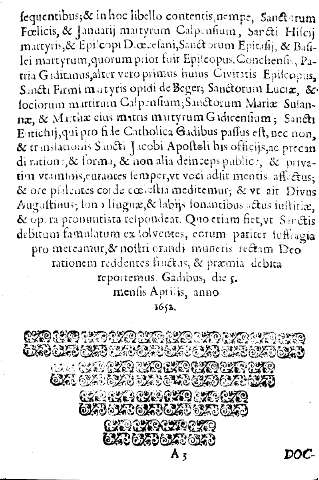 sequentibus; & in hoc libello contentis, nempe, Sanctorum
Fœlicis, & Januarij martyrum Calpensium, Sancti Hiscij
martyris, & Episcopi Diœcesani, Sanctorum Epitasij, & Basi-
lei martyrum, quorum prior fuit Episcopus. Conchensis, Pa-
tria Giditanus, alter vero primus huius Civitatis Episcopus,
Sancti Firmi martyris opidi de Beger; Sanctorum Luciæ, &
sociorum martirum Calpensium; Sanctorum Mariæ Susan-
næ, & Marthæ eius matris martyrum Gidicensium; Sancti
Eutichij, qui pro fide Catholica Gadibus passus est, nec non,
& translationis Sancti Jacobi Apostoli his officijs, ac precan
di ratione, & forma, & non alia deinceps publice, & priva-
tim vtamini, curantes semper, vt voci adsit mentis affectus;
& ore psallentes corde cœlestia meditemur; & vt ait Divus
Augustinus; sono linguæ, & labijs sonantibus actus iustitiæ,
& opera pronuntiata respondeat. Quo etiam fiet, vt Sanctis
debitum famulatum exsolventes, eorum pariter suffragia
pro mereamur, & nostri orandi muneris rectam Deo
rationem reddentes functas, & præmia debita
reportemus. Gadibus, die 5.
mensis Aprilis, anno
1652.
A 3
DOC-